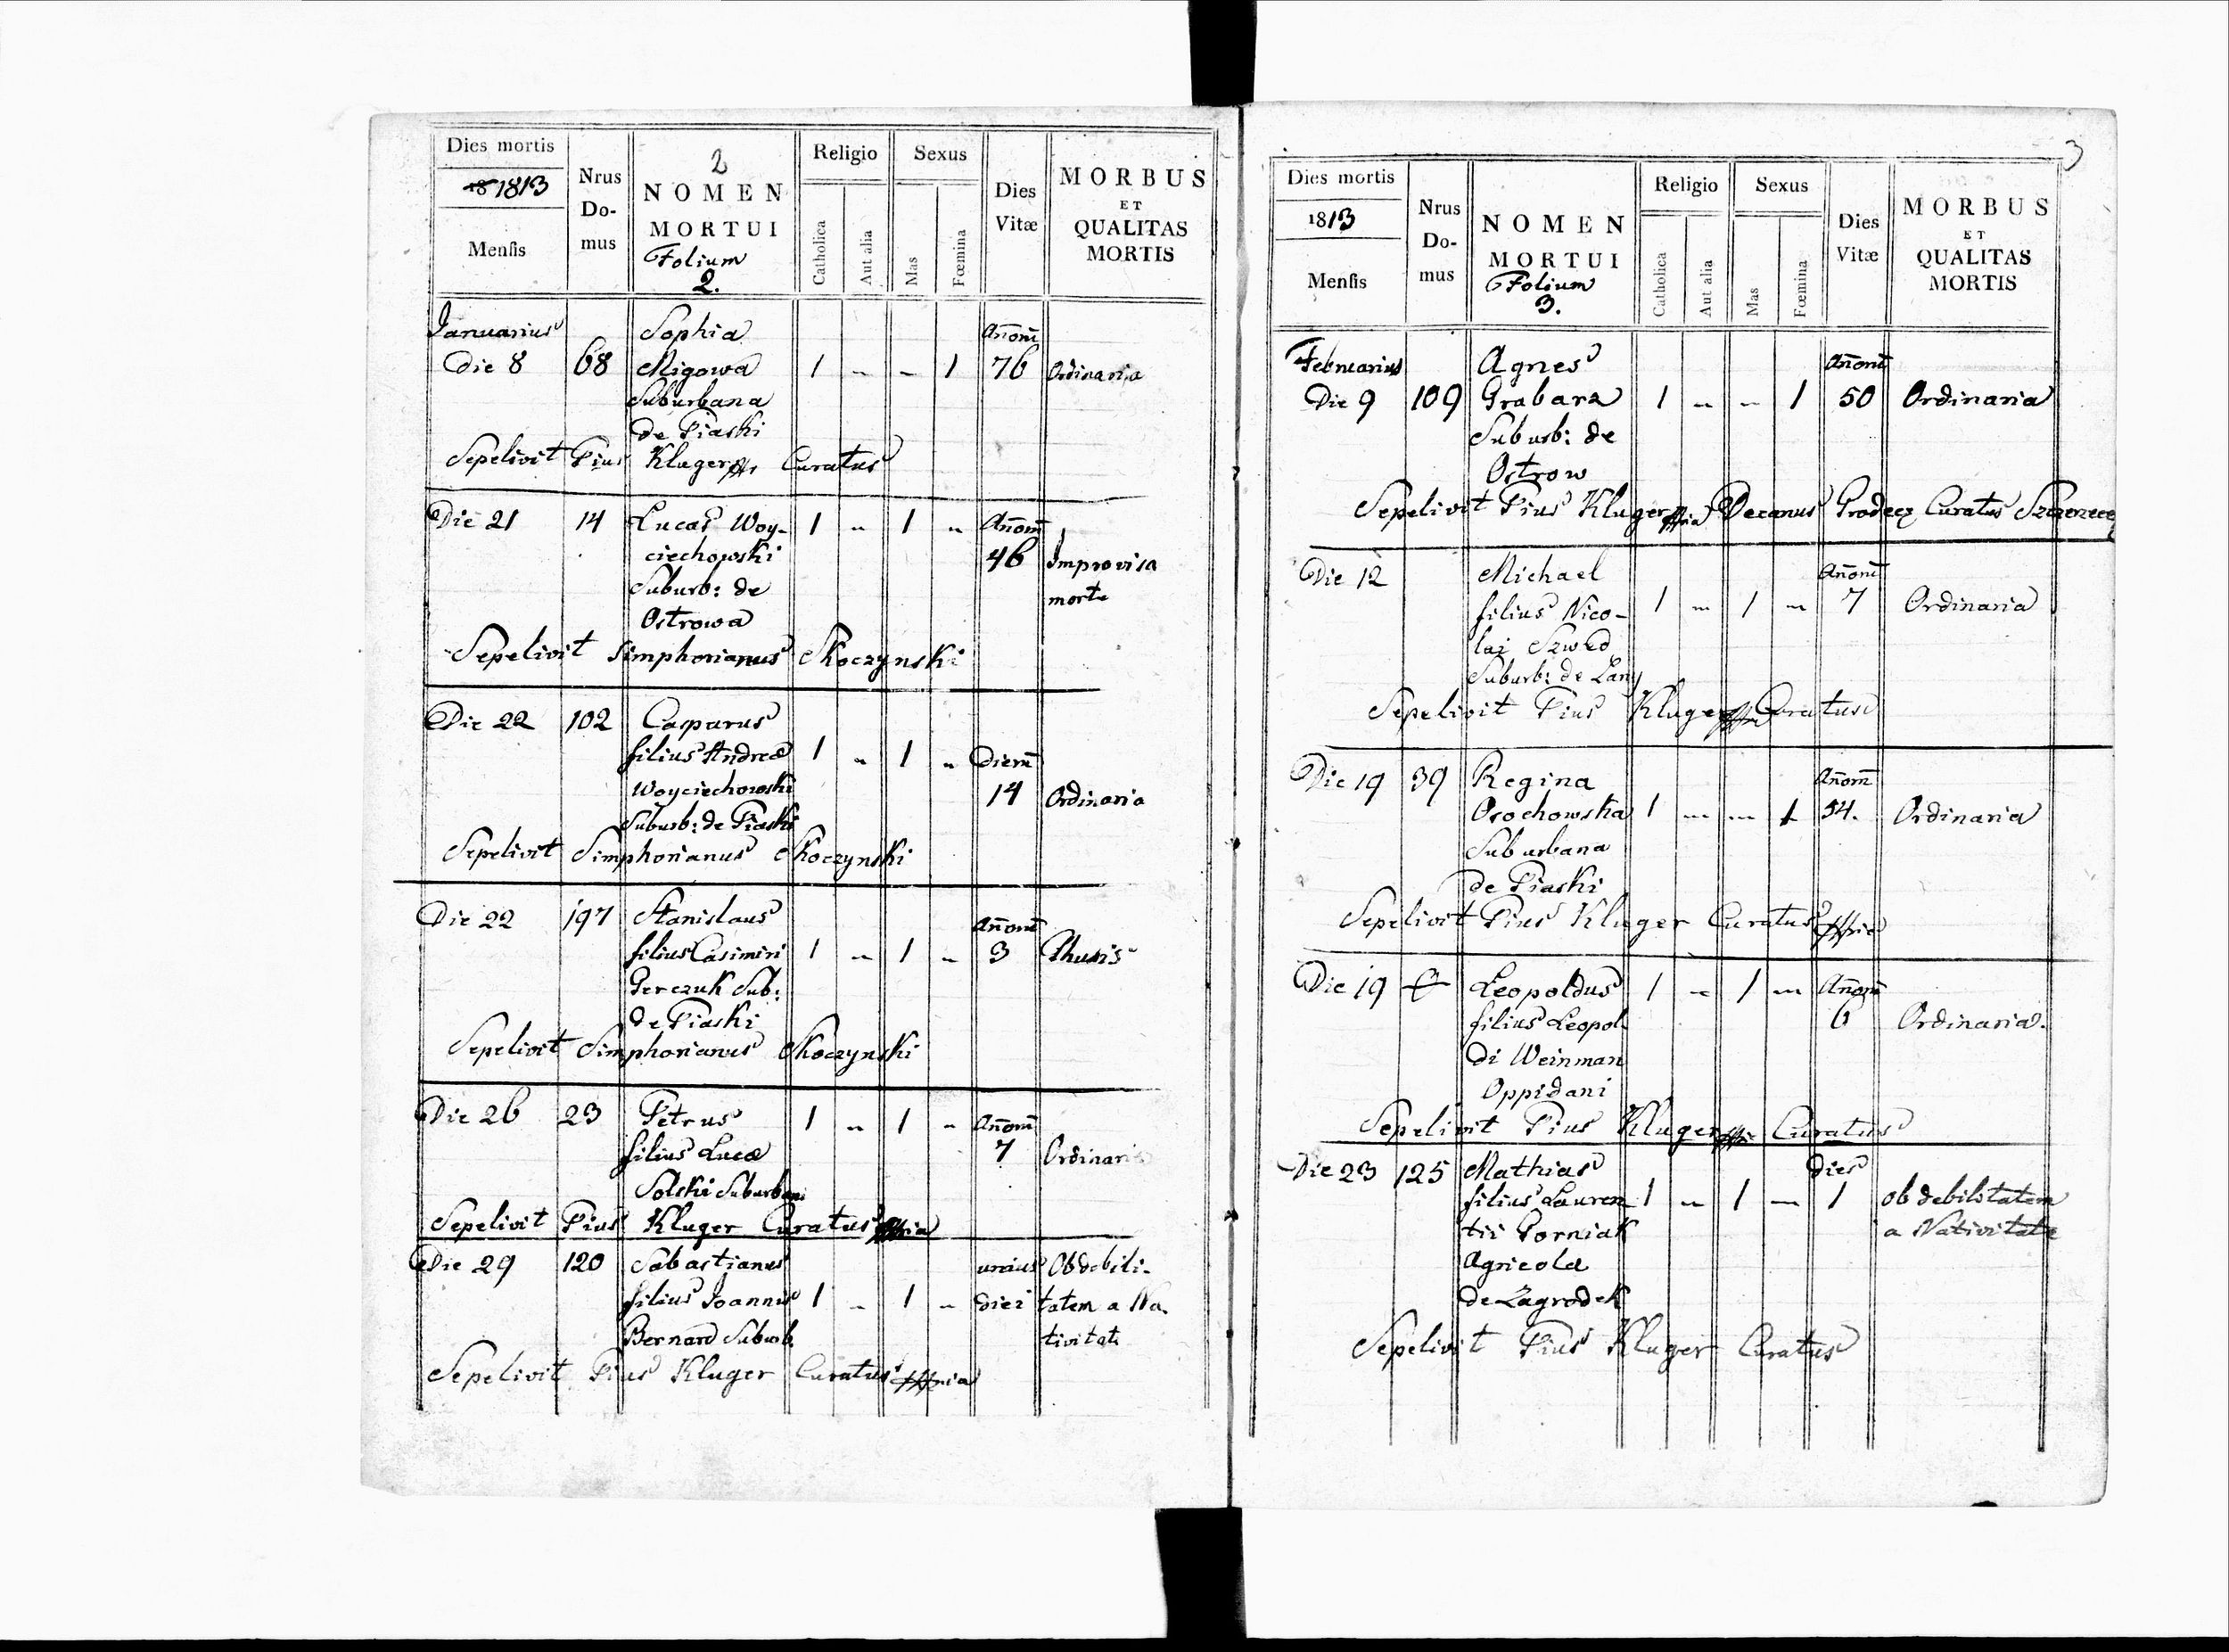 Dies mortis
18 1813
Mensis
Nrus
Do-
mus
2
NOMEN
MORTUI
Folium
2.
Religio
Catholica
Aut alia
Sexus
Mas
Fœmina
Dies
Vitæ
MORBUS
ET
QUALITAS
MORTIS
Januarius Sophia Annorū
Die 8 68 Migowa 1 - - 1 76 Ordinaria
Suburbana
de Piaski
Sepelivit Pius Kluger Curatus
Die 21 14 Lucas Woy- 1 - 1 - Annorū
ciechowski 46 Improvisa
Suburb: de morte
Ostrowa
Sepelivit Simphorianus Skoczynski
Die 22 102 Casparus
filius Andreæ 1 - 1 - Dierū
Woyciechowski 14 Ordinaria
Suburb: de Piaski
Sepelivit Simphorianus Skoczynski
Die 22 197 Stanislaus Annorū
filius Casimiri 1 - 1 - 3
Gerczuk Sub:
de Piaski
Sepelivit Simphorianus Skoczynski
Die 26 23 Petrus 1 - 1 - Annorū
filius Lucæ 7 Ordinaria
Solski Suburbani
Sepelivit Pius Kluger Curatus
Die 29 120 Sabastianus unius Ob debili-
filius Joannis 1 - 1 - diei tatem a Na-
Bernard Suburb. tivitate
Sepelivit Pius Kluger Curatus
3
Dies mortis
1813
Mensis
Nrus
Do-
mus
NOMEN
MORTUI
Folium
3.
Religio
Catholica
Aut alia
Sexus
Mas
Fœmina
Dies
Vitæ
MORBUS
ET
QUALITAS
MORTIS
Februarius Agnes Annorū
Die 9 109 Grabara 1 - - 1 50 Ordinaria
Suburb: de
Ostrow
Sepelivit Pius Kluger Decanus Grodecz Curatus
Die 12 Michael Annorū
filius Nico- 1 - 1 - 7 Ordinaria
lai Szwed
Suburb: de Lany
Sepelivit Pius Kluger Curatus
Die 19 39 Regina Annorū
Orochowska 1 - - 1 54. Ordinaria
Suburbana
de Piaski
Sepelivit Pius Kluger Curatus
Die 19 Leopoldus 1 - 1 - Annorū
filius Leopol- 6 Ordinaria.
di Weinman
Oppidani
Sepelivit Pius Kluger Curatus
Die 23 125 Mathias dies
filius Lauren- 1 - 1 - 1 ob debilitatem
tii Gorniak a Nativitate
Agricola
de Zagrodek
Sepelivit Pius Kluger Curatus